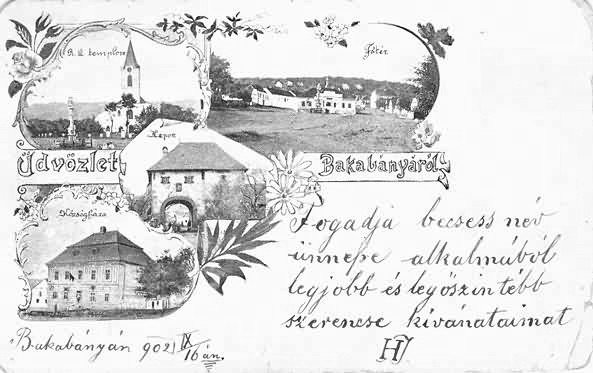 R. k. templom
Főtér
Kapu
Üdvözlet Bakabányáról
Községháza
Fogadja becsess név
ünnepe alkalmából
legjobb és legöszintébb
szerencse kívánataimat
Bakabányán 902 IX/16 án.